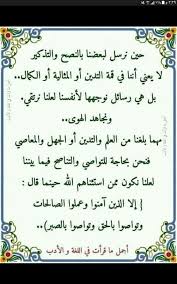 حين نرسل لبعضنا بالنصح والتذكير
لا يعني أننا في قمة التدين أو المثالية أو الكمال..
بل هي رسائل نوجهها لأنفسنا لعلنا نرتقي.
ونجاهد الهوى..
مهما بلغنا من العلم والتدين أو الجهل والمعاصي
فنحن بحاجة للتواصي والتناصح فيما بيننا
لعلنا نكون ممن استثناهم الله حينما قال :
{ إلا الذين آمنوا وعملوا الصالحات
وتواصوا بالحق وتواصوا بالصبر)..
أجمل ما قرأت في اللغة و الأدب